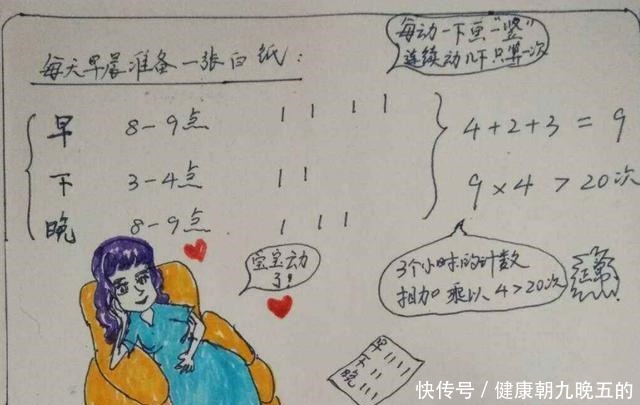 每天早晨准备一张白纸：
每动一下画"一竖"
连续动几下只算一次
早 8-9点 | | | |
下 3-4点 | |
晚 8-9点 | | |
4+2+3=9
9×4>20次
3个小时的计数
相加乘以4>20次
正常
宝宝动了!
早||||
下||
晚|||
快传号/健康朝九晚五的